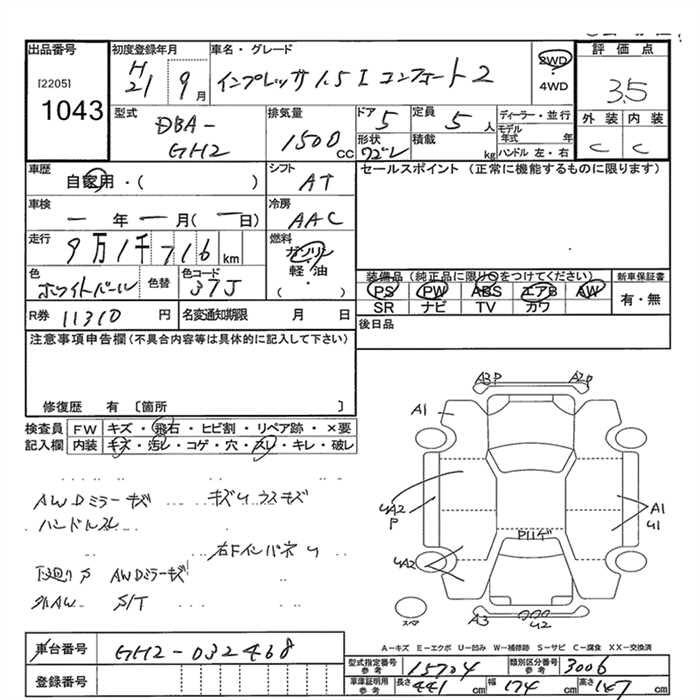 出品番号
[2205]
1043
初度登録年月
H21 9月
車名・グレード
インプレッサ 1.5 I コンフォート2
2WD
・
4WD
評価点
3.5
外装 内装
C C
型式
DBA-
GH2
排気量
1500 CC
ドア 5
形状 ワゴン
定員 5 人
積載 kg
ディーラー・並行
モデル年式 年
ハンドル 左・右
車歴
自家用・( )
シフト
AT
セールスポイント (正常に機能するものに限ります)
車検
ー年ー月(ー日)
冷房
AAC
走行
9万1千716km
燃料
ガソリン
軽・油
( )
色
ホワイトパール
色替
色コード
37J
装備品(純正品に限り○をつけてください)
PS PW ABS エアB AW
SR ナビ TV カワ
新車保証書
有・無
R券 11310 円
名変通知期限 月 日
後日品
注意事項申告欄(不具合内容等は具体的に記入して下さい)
修復歴 有 〔箇所 〕
検査員 FW キズ・飛石・ヒビ割・リペア跡・×要
記入欄 内装 キズ・汚レ・コゲ・穴・スレ・キレ・破レ
AWDミラーキズ キズU ウスキズ
ハンドルスレ
右FインパネU
下廻りサ AWDミラーキズ
外AW S/T
A3P A2P
A1
UA2
P
A1
U1
UA2
A3
U2
スペア
A－キズ E－エクボ U－凹み W－補修跡 S－サビ C－腐食 XX－交換済
車台番号 GH2-032468
登録番号
型式指定番号 参考 15704
類別区分番号 参考 3006
車庫証明用 参考 長さ 441 cm 幅 174 cm 高さ 147 cm